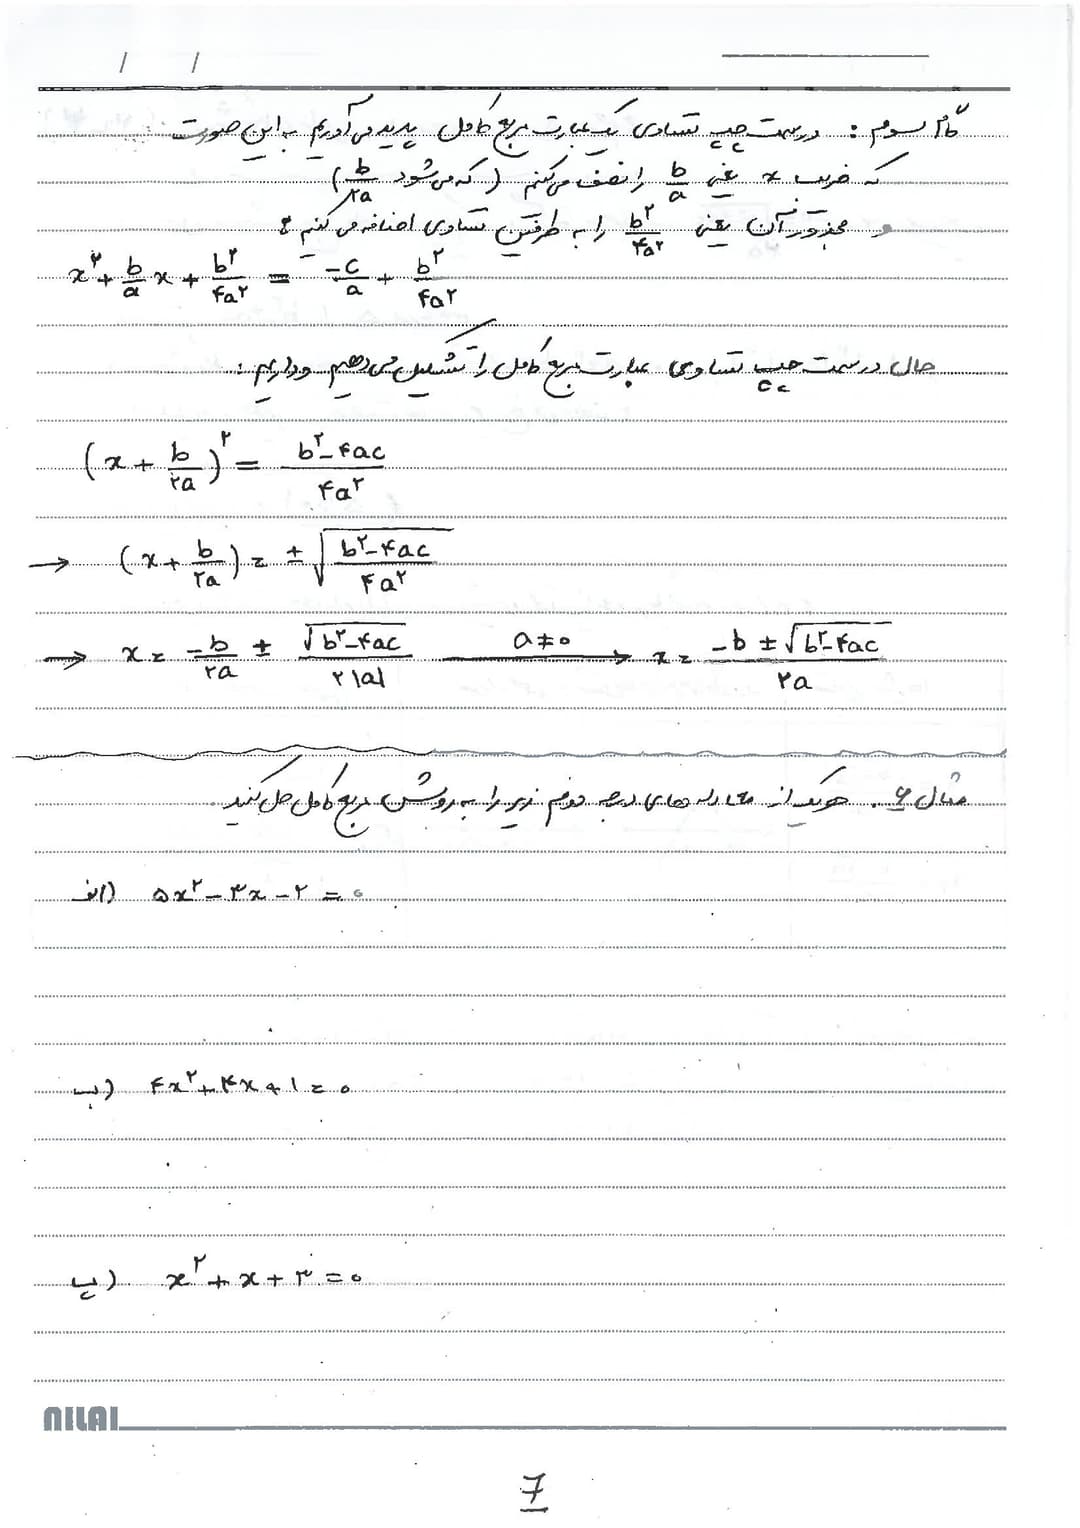 / /
گام سوم : در سمت چپ تساوی یک عبارت مربع کامل پدید می آوریم به این صورت
که ضریب x یعنی b/a را نصف می کنیم ( که می شود b/۲a )
و مجذور آن یعنی b²/۴a² را به طرفین تساوی اضافه می کنیم :
x² + b/a x + b²/۴a² = -c/a + b²/۴a²
حال در سمت چپ تساوی عبارت مربع کامل را تشکیل می دهیم و داریم :
(x + b/۲a)² = b²-۴ac / ۴a²
→ (x + b/۲a) = ± √(b²-۴ac / ۴a²)
→ x = -b/۲a ± √(b²-۴ac) / ۲|a| a≠۰ → x = -b ± √(b²-۴ac) / ۲a
مثال ۶. هریک از معادله های درجه دوم زیر را به روش مربع کامل حل کنید.
الف) ۵x² - ۳x - ۲ = ۰
ب) ۴x² + ۴x + ۱ = ۰
پ) x² + x + ۳ = ۰
NILAI
7